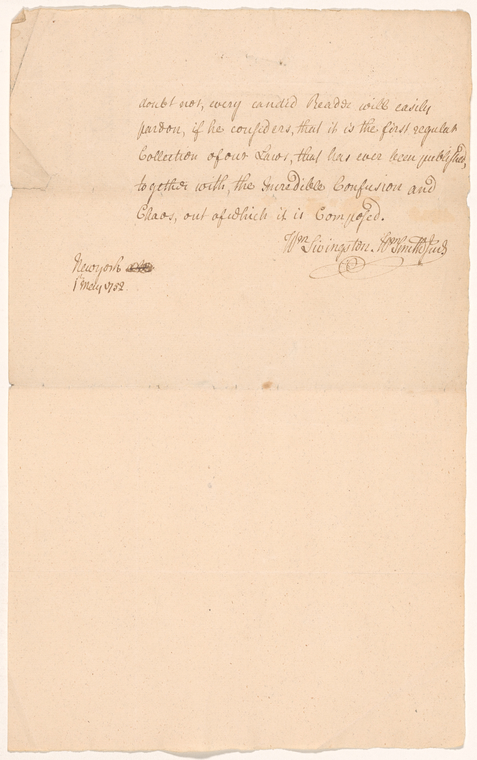 doubt not, every candid Reader will easily
pardon, if he considers, that it is the first regular
Collection of our Laws, that has ever been published,
together with, the Incredible Confusion and
Chaos, out of which it is Composed.
Wm Livingston. Wm Smith Junr
Newyork
1st May 1752